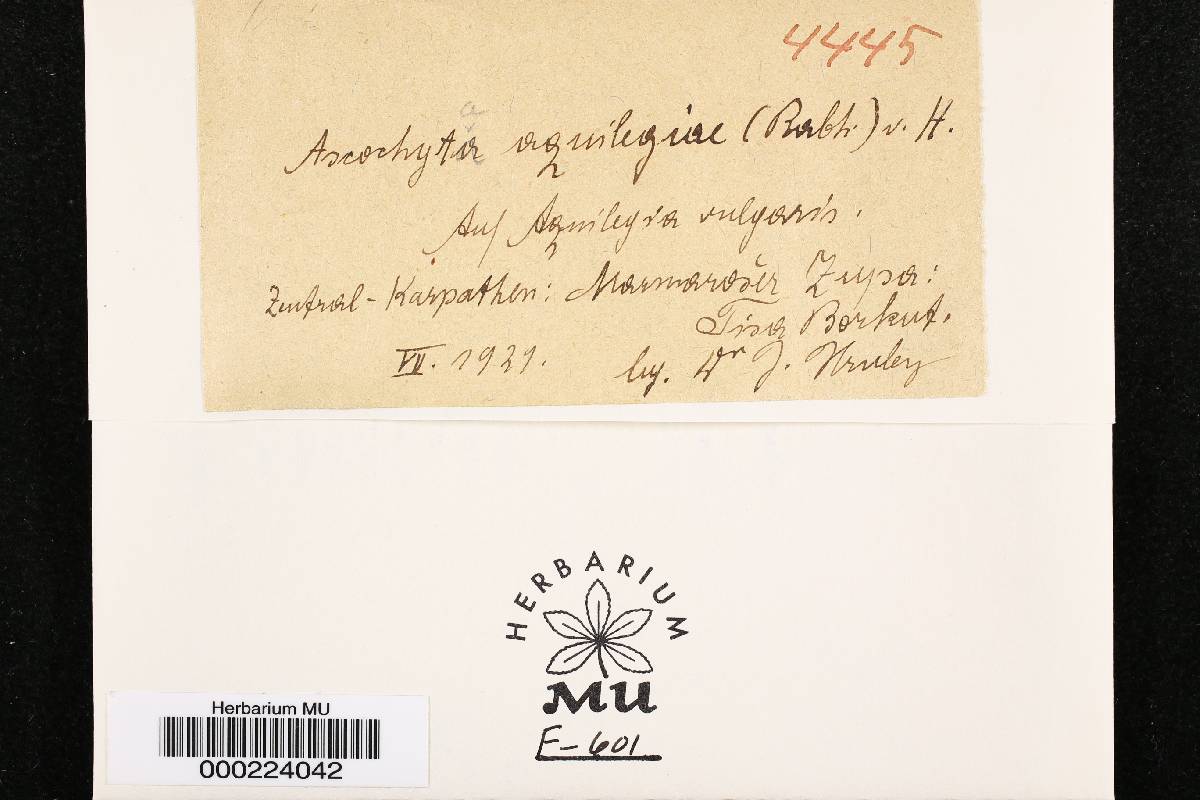 4445
a
Ascochyta aquilegiae (Rabh.) v. H.
Auf Aquilegia vulgaris.
Zentral-Karpathen: Marmarošer Zupa:
Tisa Borkut.
VII. 1929. leg. Dr J. Hruby
HERBARIUM
MU
F-601
Herbarium MU
000224042